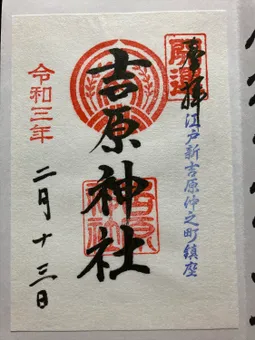 開運
奉拝
江戸新吉原仲之町鎮座
吉原神社
吉原神社
令和三年
二月十三日